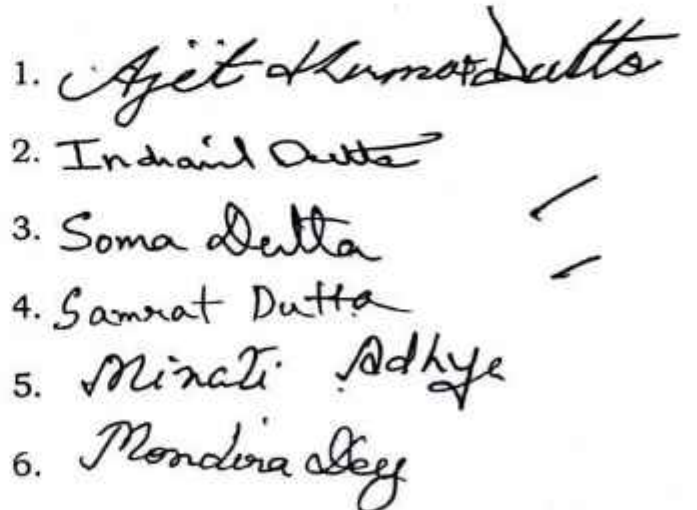 1. Ajit Kumar Dutta
2. Indranil Dutta
3. Soma Dutta
4. Samrat Dutta
5. Minati Adhya
6. Mondira Dey